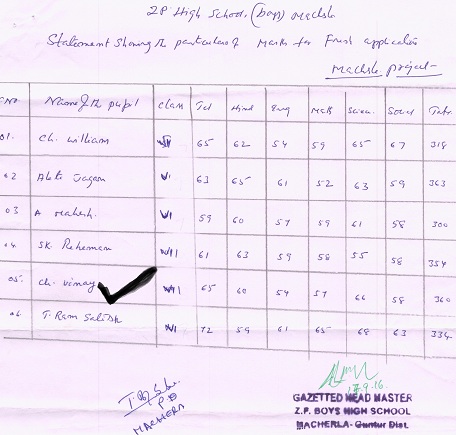 ZP High School (boys) Macherla
Statement showing the particulars of Marks for Fresh application
Macherla project
S.NO Name of the pupil class Tel Hind Eng Maths Scien. Social Total
01. Ch. william 65 62 54 59 65 67 318
02 Jagan VI 63 65 61 52 63 59 363
03 A Mahesh. VI 59 60 57 59 61 58 300
04. SK. Reheman VII 61 63 59 58 55 58 354
05. Ch. Vimay VII 65 60 54 57 66 58 360
06 T. Ram VI 72 59 61 65 68 63 334
P.D
MACHERLA
17.9.16.
GAZETTED HEAD MASTER
Z.P. BOYS HIGH SCHOOL
MACHERLA- Guntur Dist.